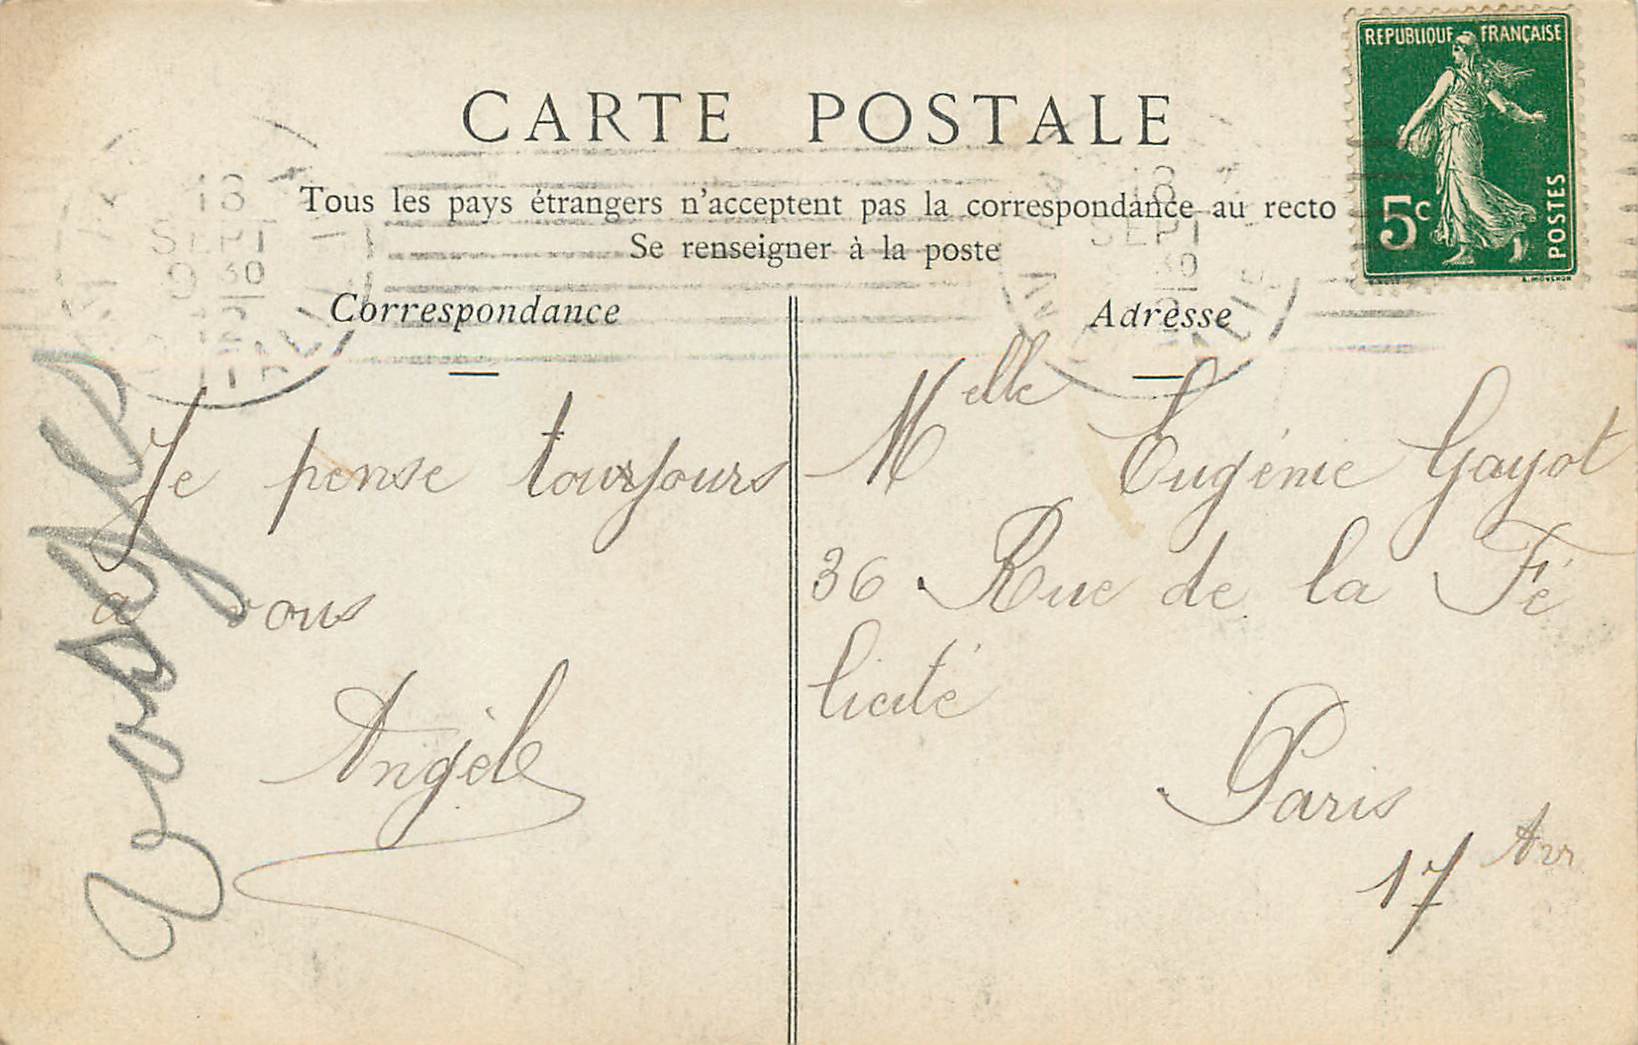 CARTE POSTALE
REPUBLIQUE FRANÇAISE
5c
POSTES
Tous les pays étrangers n'acceptent pas la correspondance au recto
Se renseigner à la poste
Correspondance
Adresse
18
SEPT
9 30
18
SEPT
30
Vosges
Je pense toujours
a vous
Angèle
Melle Eugénie Gayot
36 Rue de la Fé
licité
Paris
17 Arr